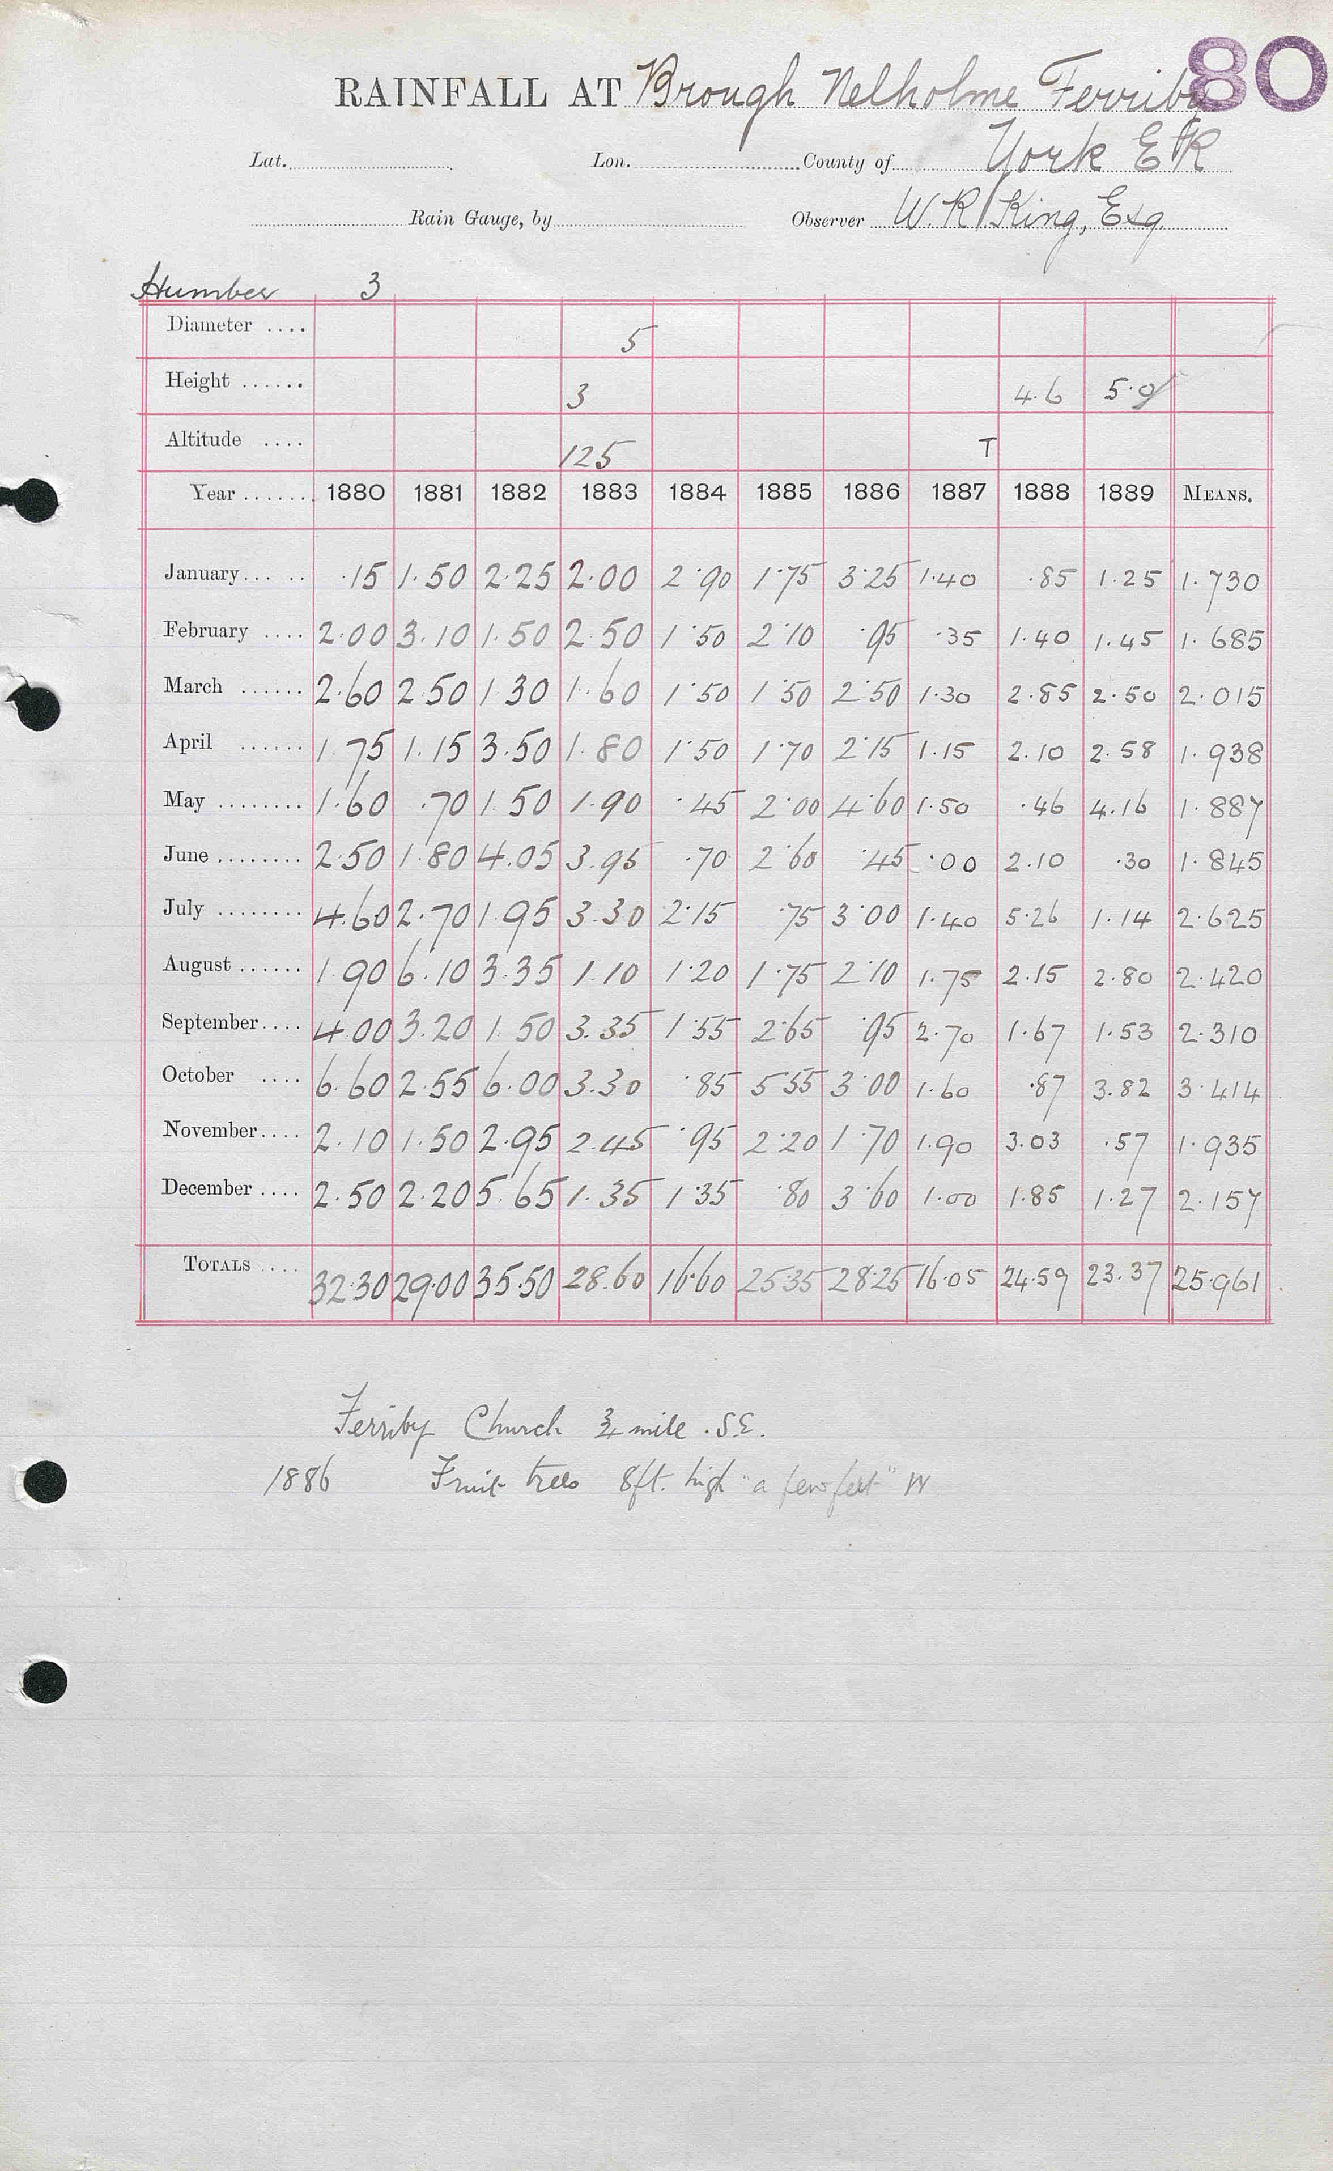 80
RAINFALL AT Brough Nelholme Ferriby
Lat. Lon. County of York E R
Rain Gauge, by Observer W. R King, Esq.
Humber 3
Diameter .... 5
Height ...... 3 4.6 5.0
Altitude .... 125 T
Year ....... 1880 1881 1882 1883 1884 1885 1886 1887 1888 1889 MEANS.
January... .. .15 1.50 2.25 2.00 2.90 1.75 3.25 1.40 .85 1.25 1.730
February .... 2.00 3.10 1.50 2.50 1.50 2.10 .95 .35 1.40 1.45 1.685
March ...... 2.60 2.50 1.30 1.60 1.50 1.50 2.50 1.30 2.85 2.50 2.015
April ...... 1.75 1.15 3.50 1.80 1.50 1.70 2.15 1.15 2.10 2.58 1.938
May ........ 1.60 .70 1.50 1.90 .45 2.00 4.60 1.50 .46 4.16 1.887
June ........ 2.50 1.80 4.05 3.95 .70 2.60 .45 .00 2.10 .30 1.845
July ........ 4.60 2.70 1.95 3.30 2.15 .75 3.00 1.40 5.26 1.14 2.625
August ...... 1.90 6.10 3.35 1.10 1.20 1.75 2.10 1.75 2.15 2.80 2.420
September.... 4.00 3.20 1.50 3.35 1.55 2.65 .95 2.70 1.67 1.53 2.310
October .... 6.60 2.55 6.00 3.30 .85 5.55 3.00 1.60 .87 3.82 3.414
November.... 2.10 1.50 2.95 2.45 .95 2.20 1.70 1.90 3.03 .57 1.935
December .... 2.50 2.20 5.65 1.35 1.35 .80 3.60 1.00 1.85 1.27 2.157
TOTALS .... 32.30 29.00 35.50 28.60 16.60 25.35 28.25 16.05 24.59 23.37 25.961
Ferriby Church ¾ mile . S.E.
1886 Fruit trees 8ft. high "a few feet" W